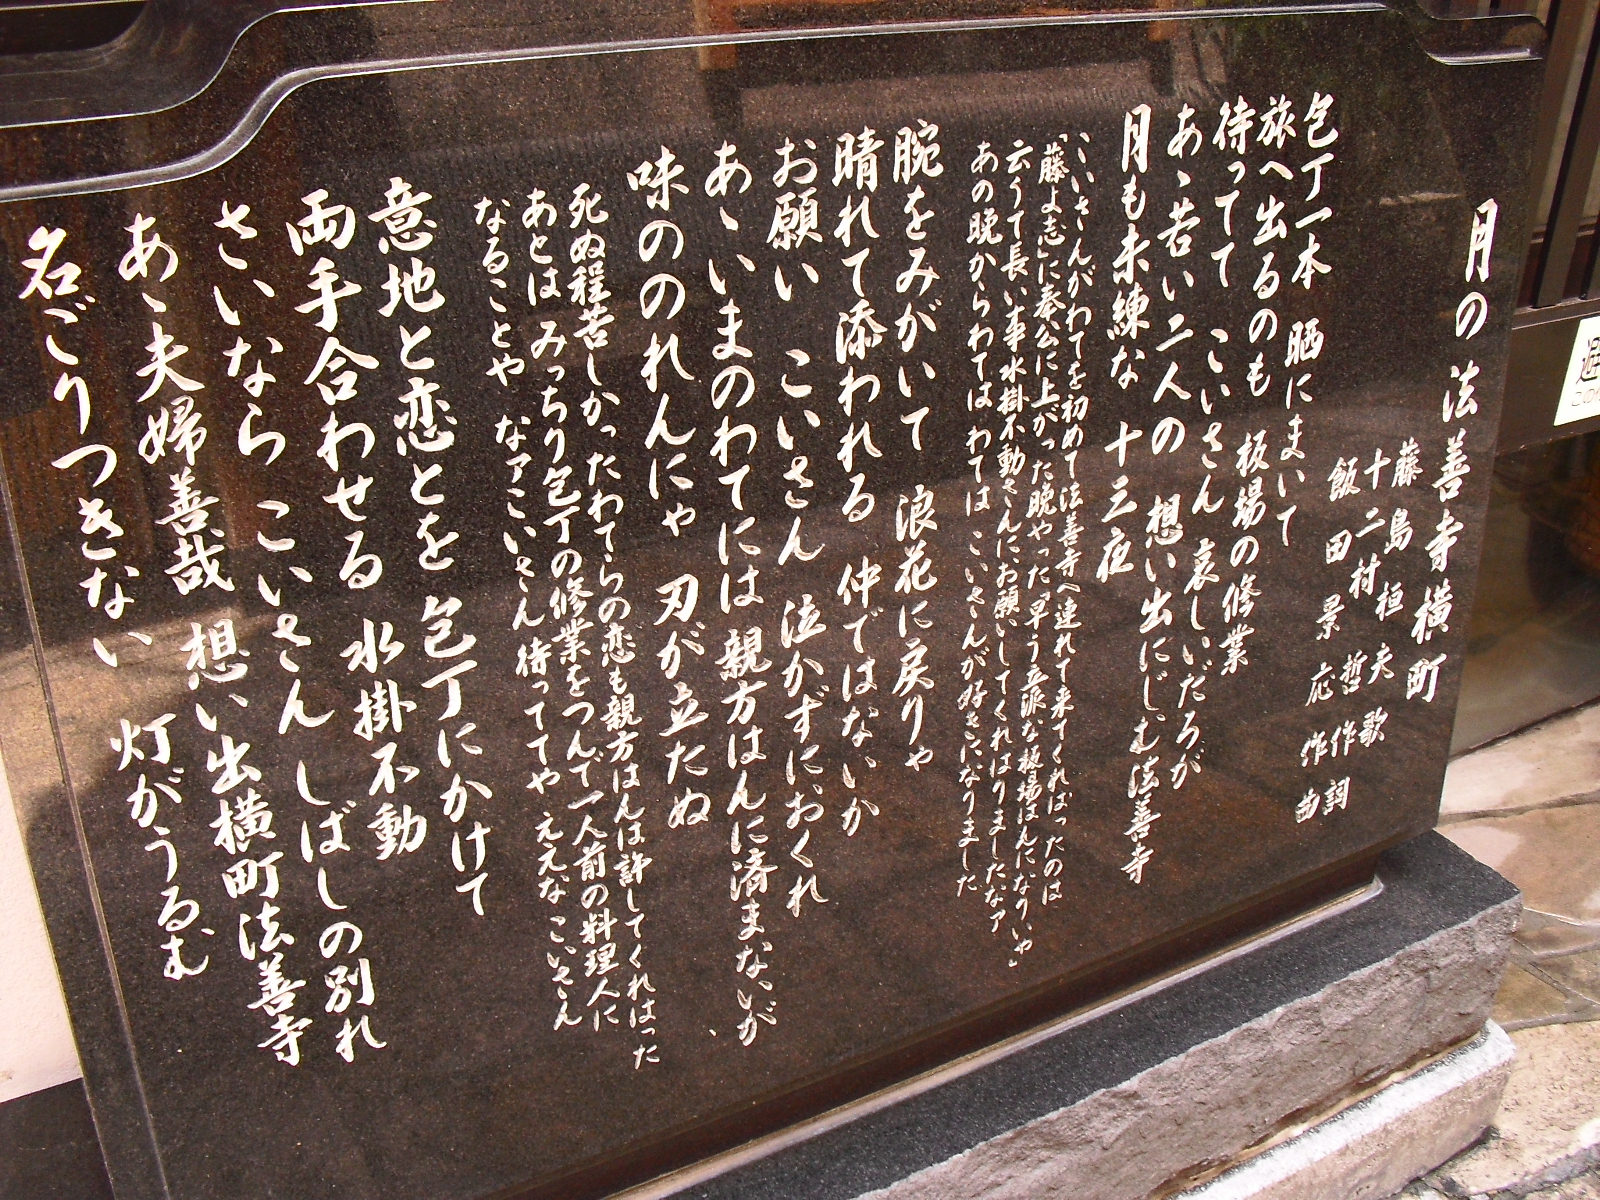 月の法善寺横町
藤島桓夫 歌
十二村哲 作詞
飯田景応 作曲
包丁一本 晒にまいて
旅へ出るのも 板場の修業
待ってて こいさん 哀しいだろが
あゝ若い二人の 想い出にじむ法善寺
月も未練な 十三夜
こいさんがわてを初めて法善寺へ連れて来てくれはったのは
「藤よ志」に奉公に上がった晩やった「早う立派な板場はんになりいや」
云うて長い事水掛不動さんにお願いしてくれはりましたなァ
あの晩からわては わては こいさんが好きになりました
腕をみがいて 浪花に戻りゃ
晴れて添われる 仲ではないか
お願い こいさん 泣かずにおくれ
あゝいまのわてには 親方はんに済まないが
味ののれんにゃ 刃が立たぬ
死ぬ程苦しかったわてらの恋も親方はんは許してくれはった
あとは みっちり包丁の修業をつんで一人前の料理人に
なることや なァこいさん待っててや ええな こいさん
意地と恋とを 包丁にかけて
両手合わせる 水掛不動
さいなら こいさん しばしの別れ
あゝ夫婦善哉 想い出横町法善寺
名ごりつきない 灯がうるむ